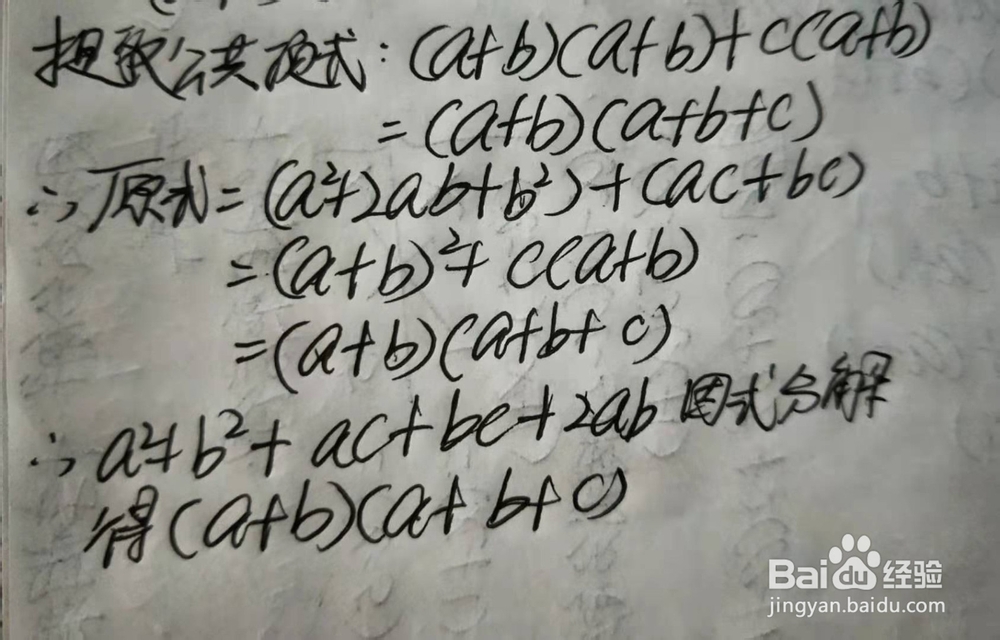 提取公共项式：(a+b)(a+b)+c(a+b)
=(a+b)(a+b+c)
∴原式=(a²+2ab+b²)+(ac+bc)
=(a+b)²+c(a+b)
=(a+b)(a+b+c)
∴a²+b²+ac+bc+2ab因式分解
得(a+b)(a+b+c)
Baidu经验
jingyan.baidu.com